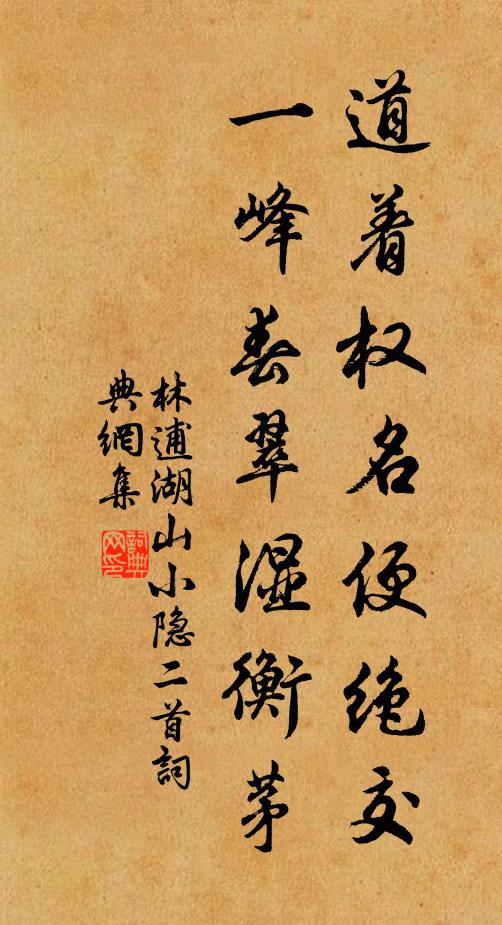 道着权名便绝交
一峰春翠湿衡茅
林逋湖山小隐二首詞
典網集
詞典
网印